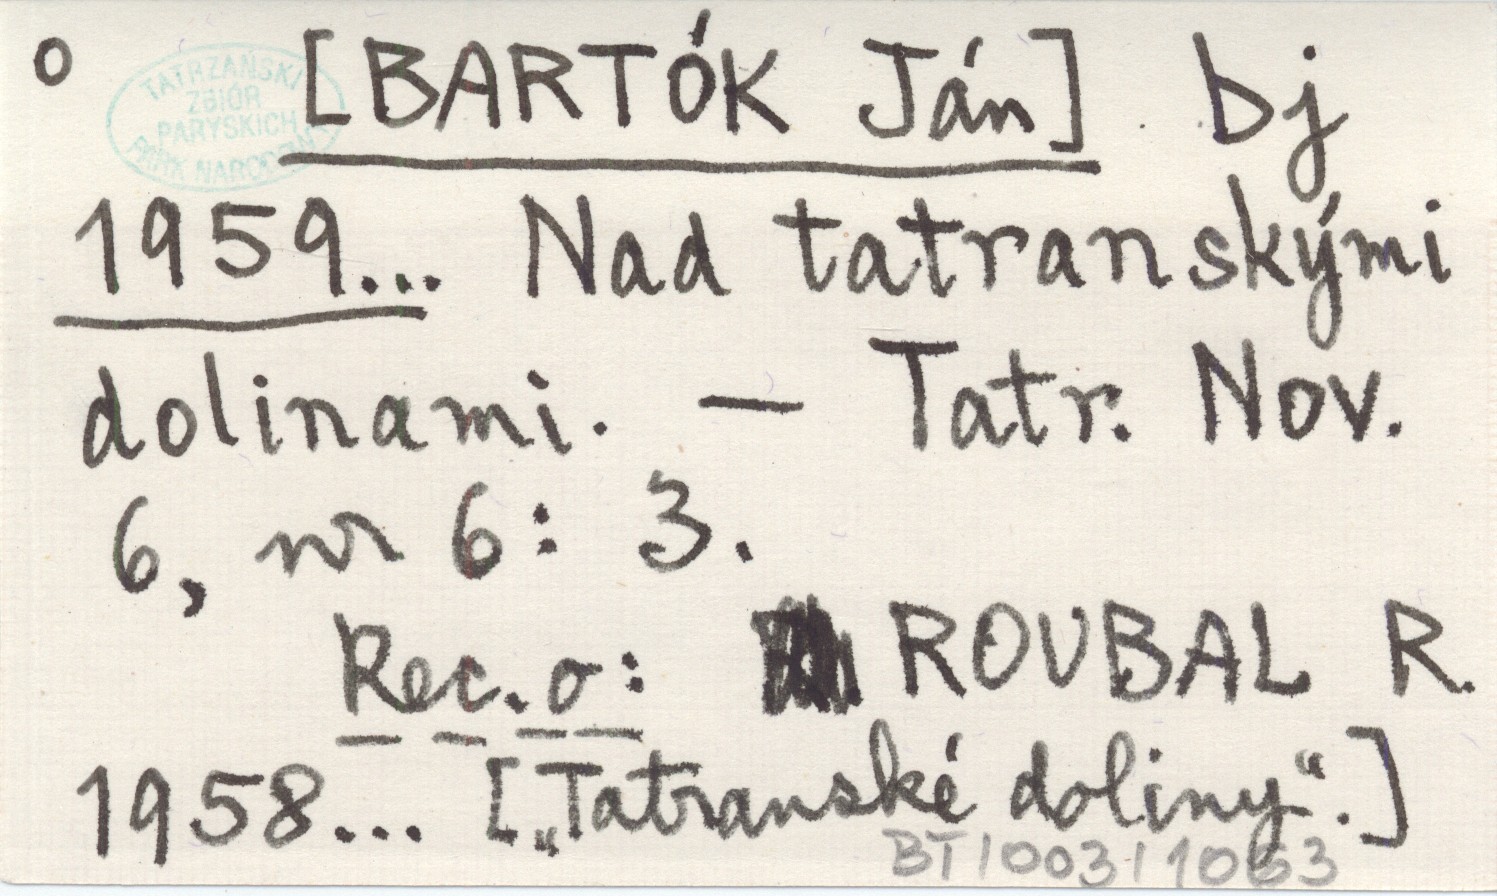 o [BARTÓK Ján] bj
TATRZAŃSKI
ZBIÓR
PARYSKICH
PARK NARODOWY
1959... Nad tatranskými
dolinami. — Tatr. Nov.
6, nr 6: 3.
Rec. o: ROUBAL R.
1958... [„Tatranské doliny“.]
BT/003/1063